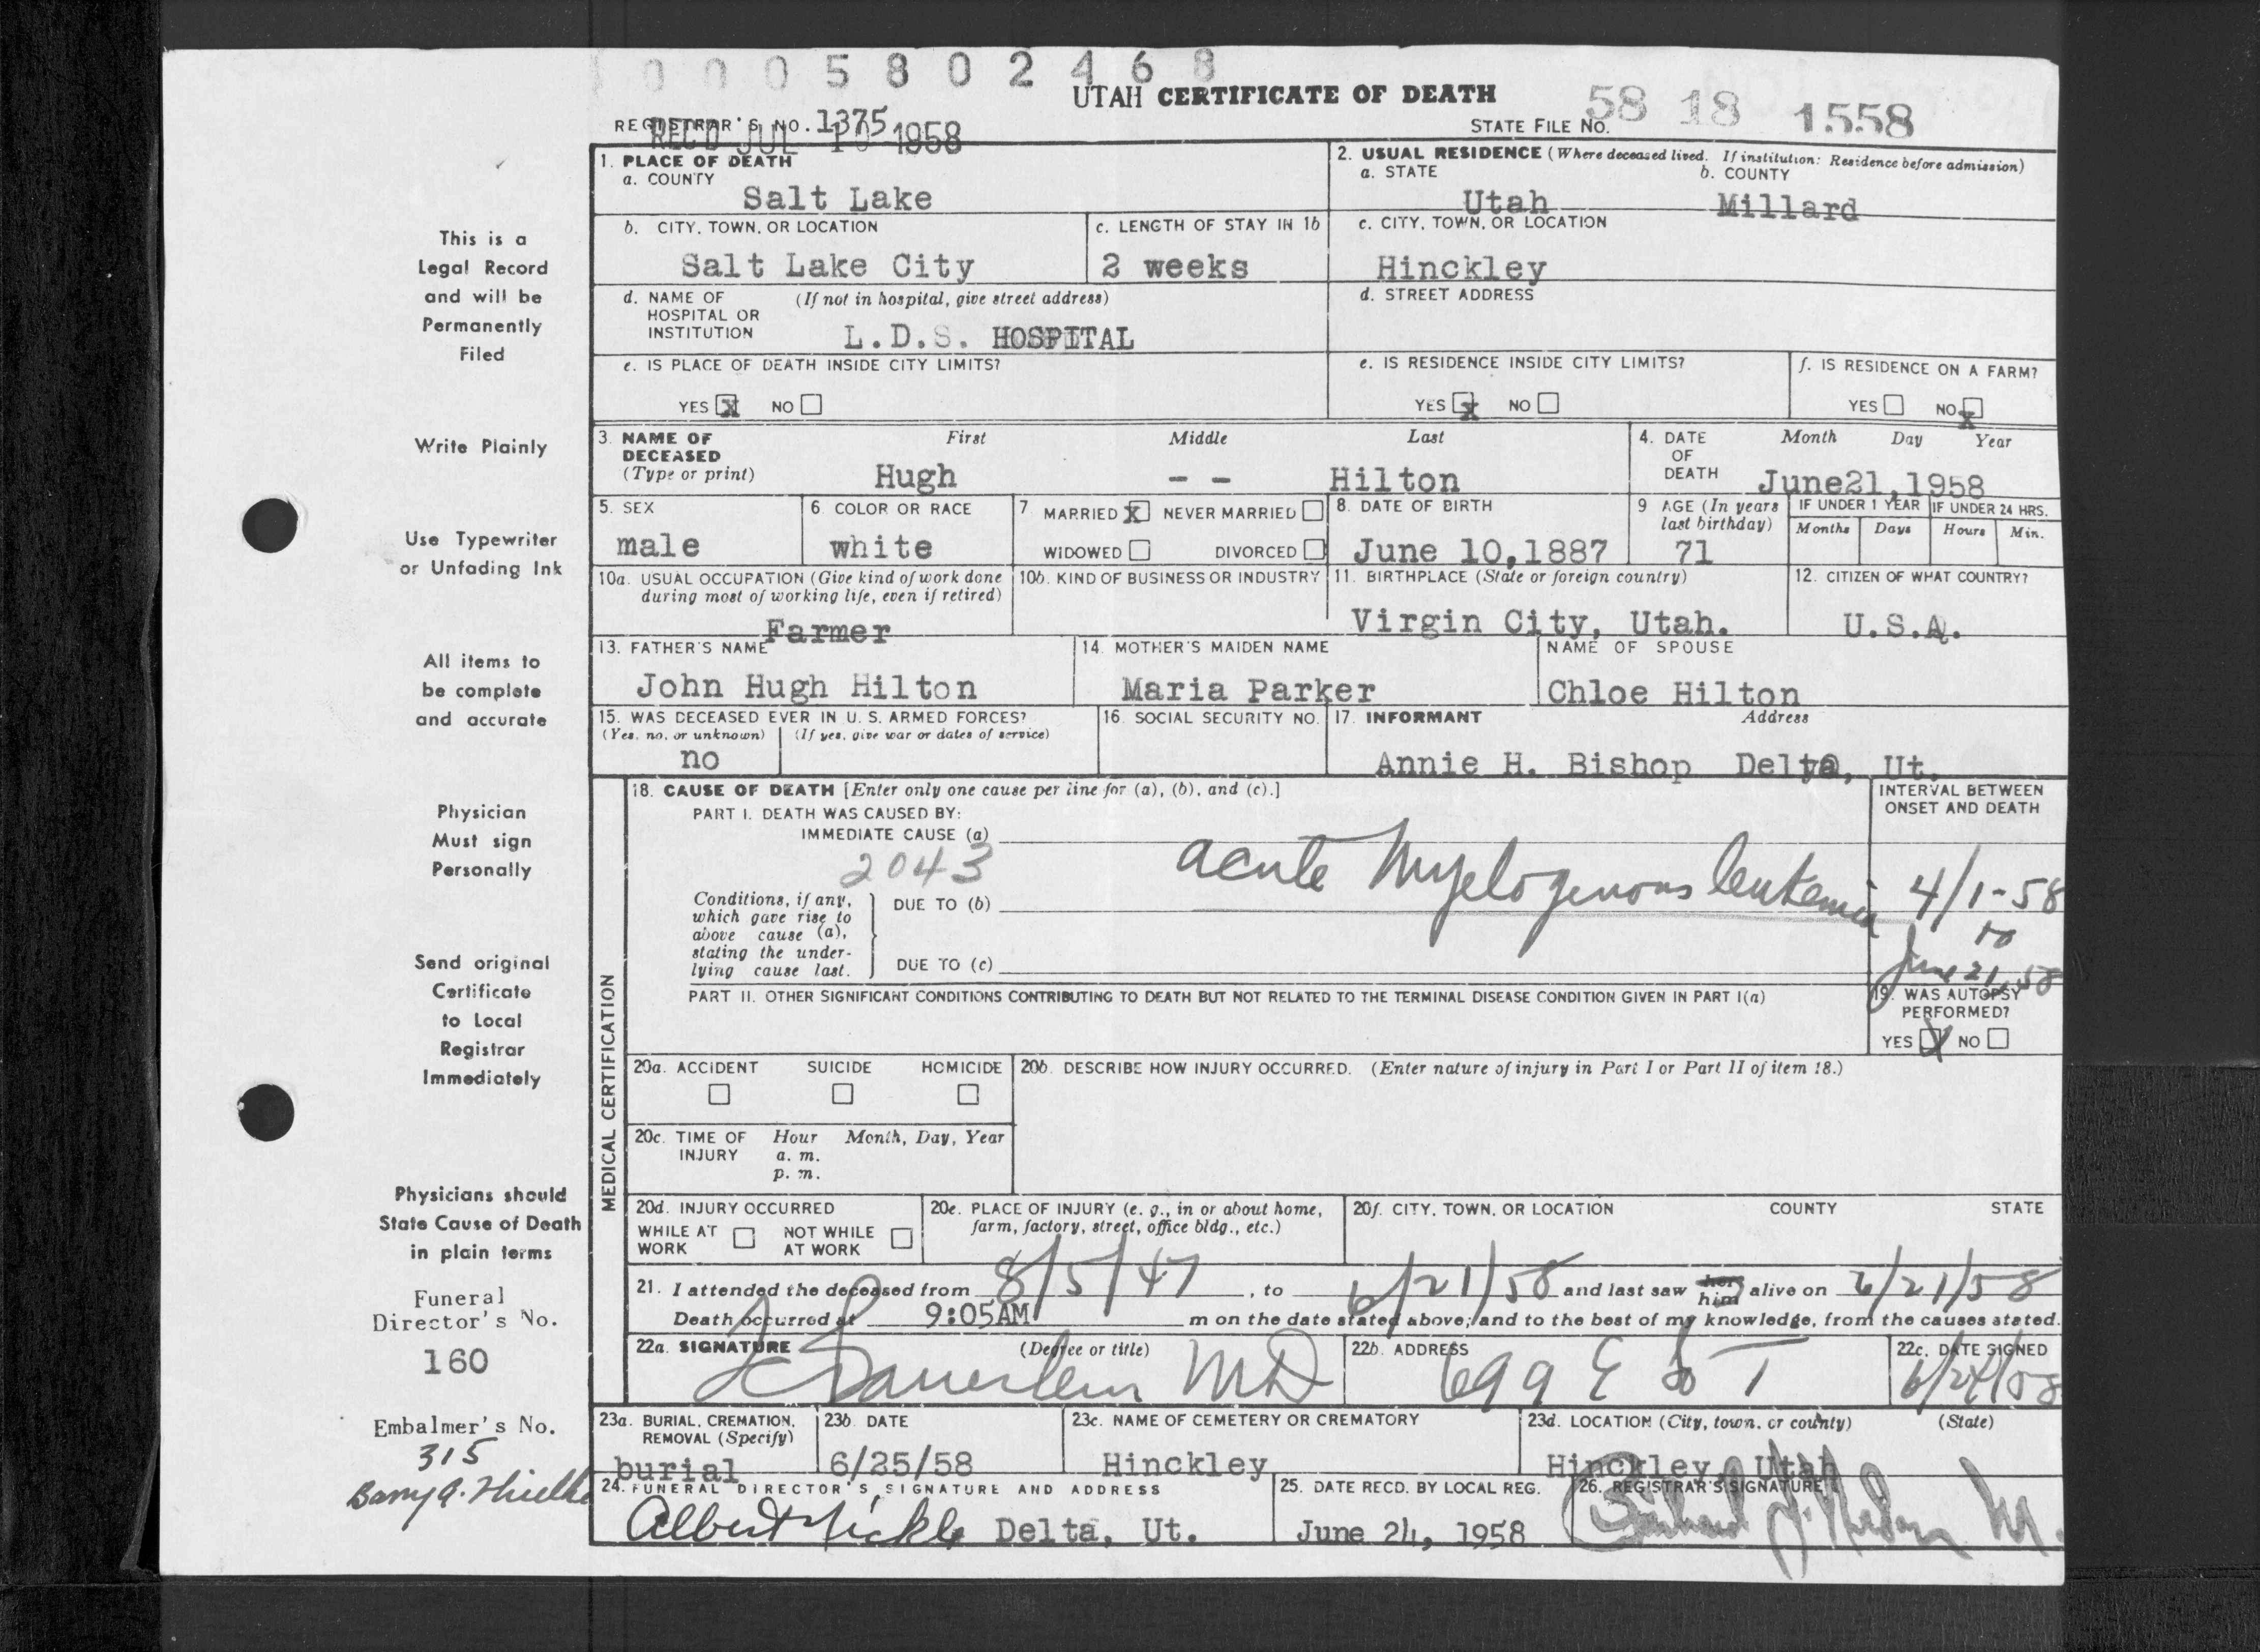 0 0 0 5 8 0 2 4 6 8
UTAH CERTIFICATE OF DEATH
REGISTRAR'S NO. 1375
REC'D JUL 10 1958
STATE FILE NO. 58 18 1558
This is a
Legal Record
and will be
Permanently
Filed
Write Plainly
Use Typewriter
or Unfading Ink
All items to
be complete
and accurate
Physician
Must sign
Personally
Send original
Certificate
to Local
Registrar
Immediately
Physicians should
State Cause of Death
in plain terms
Funeral
Director's No.
160
Embalmer's No.
315
1. PLACE OF DEATH
a. COUNTY
Salt Lake
2. USUAL RESIDENCE (Where deceased lived. If institution: Residence before admission)
a. STATE b. COUNTY
Utah Millard
b. CITY, TOWN, OR LOCATION
Salt Lake City
c. LENGTH OF STAY IN 1b
2 weeks
c. CITY, TOWN, OR LOCATION
Hinckley
d. NAME OF (If not in hospital, give street address)
HOSPITAL OR
INSTITUTION
L.D.S. HOSPITAL
d. STREET ADDRESS
e. IS PLACE OF DEATH INSIDE CITY LIMITS?
YES X NO
e. IS RESIDENCE INSIDE CITY LIMITS?
YES X NO
f. IS RESIDENCE ON A FARM?
YES NO X
3. NAME OF First Middle Last
DECEASED
(Type or print) Hugh - - Hilton
4. DATE Month Day Year
OF
DEATH June21,1958
5. SEX
male
6. COLOR OR RACE
white
7. MARRIED X NEVER MARRIED
WIDOWED DIVORCED
8. DATE OF BIRTH
June 10,1887
9 AGE (In years
last birthday)
71
IF UNDER 1 YEAR IF UNDER 24 HRS.
Months Days Hours Min.
10a. USUAL OCCUPATION (Give kind of work done
during most of working life, even if retired)
Farmer
10b. KIND OF BUSINESS OR INDUSTRY
11. BIRTHPLACE (State or foreign country)
Virgin City, Utah.
12. CITIZEN OF WHAT COUNTRY?
U.S.A.
13. FATHER'S NAME
John Hugh Hilton
14. MOTHER'S MAIDEN NAME
Maria Parker
NAME OF SPOUSE
Chloe Hilton
15. WAS DECEASED EVER IN U. S. ARMED FORCES?
(Yes, no, or unknown) (If yes, give war or dates of service)
no
16. SOCIAL SECURITY NO.
17. INFORMANT Address
Annie H. Bishop Delta, Ut.
MEDICAL CERTIFICATION
18. CAUSE OF DEATH [Enter only one cause per line for (a), (b), and (c).]
PART I. DEATH WAS CAUSED BY:
IMMEDIATE CAUSE (a)
acute Myelogenous leukemia
2043
Conditions, if any,
which gave rise to
above cause (a),
stating the under-
lying cause last.
DUE TO (b)
DUE TO (c)
INTERVAL BETWEEN
ONSET AND DEATH
4/1-58
to
June 21, 58
PART II. OTHER SIGNIFICANT CONDITIONS CONTRIBUTING TO DEATH BUT NOT RELATED TO THE TERMINAL DISEASE CONDITION GIVEN IN PART I(a)
19. WAS AUTOPSY
PERFORMED?
YES X NO
20a. ACCIDENT SUICIDE HOMICIDE
20b. DESCRIBE HOW INJURY OCCURRED. (Enter nature of injury in Part I or Part II of item 18.)
20c. TIME OF Hour Month, Day, Year
INJURY a. m.
p. m.
20d. INJURY OCCURRED
WHILE AT NOT WHILE
WORK AT WORK
20e. PLACE OF INJURY (e. g., in or about home,
farm, factory, street, office bldg., etc.)
20f. CITY, TOWN, OR LOCATION COUNTY STATE
21. I attended the deceased from 8/5/47, to 6/21/58 and last saw her him alive on 6/21/58
Death occurred at 9:05AM m on the date stated above; and to the best of my knowledge, from the causes stated.
22a. SIGNATURE (Degree or title)
MD
22b. ADDRESS
699 E So T
22c. DATE SIGNED
6/24/58
23a. BURIAL, CREMATION,
REMOVAL (Specify)
burial
23b. DATE
6/25/58
23c. NAME OF CEMETERY OR CREMATORY
Hinckley
23d. LOCATION (City, town, or county) (State)
Hinckley, Utah
24. FUNERAL DIRECTOR'S SIGNATURE AND ADDRESS
Albert Nickle Delta, Ut.
25. DATE RECD. BY LOCAL REG.
June 24, 1958
26. REGISTRAR'S SIGNATURE